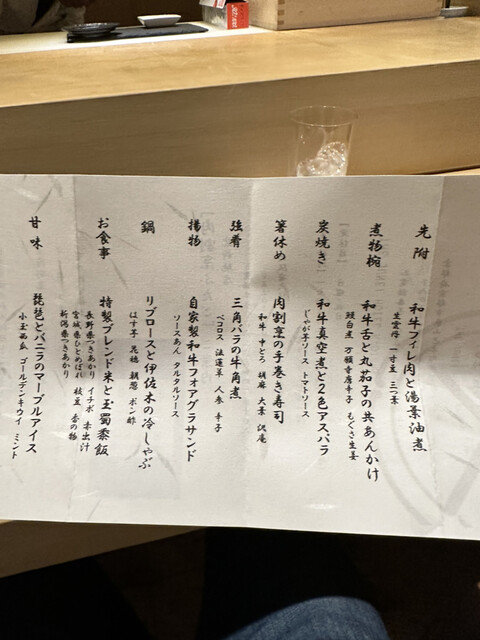 先附
和牛フィレ肉と湯葉油煮
生雲丹 一寸豆 三つ葉
煮物椀
和牛舌と丸茄子の共あんかけ
翡白煮 万願寺唐辛子 もぐさ生姜
炭焼き
和牛真空煮と2色アスパラ
じゃが芋ソース トマトソース
箸休め
肉割烹の手巻き寿司
和牛 中とろ 胡麻 大葉 沢庵
強肴
三角バラの牛角煮
ペコロス 法蓮草 人参 辛子
揚物
自家製和牛フォアグラサンド
ソースあん タルタルソース
鍋
リブロースと伊佐木の冷しゃぶ
はす芋 花穂 胡葱 ポン酢
お食事
特製ブレンド米と玉蜀黍飯
長野県つきあかり イチボ 赤出汁
宮城県ひとめぼれ 枝豆 香の物
新潟県つきあかり
甘味
琵琶とバニラのマーブルアイス
小玉西瓜 ゴールデンキウイ ミント